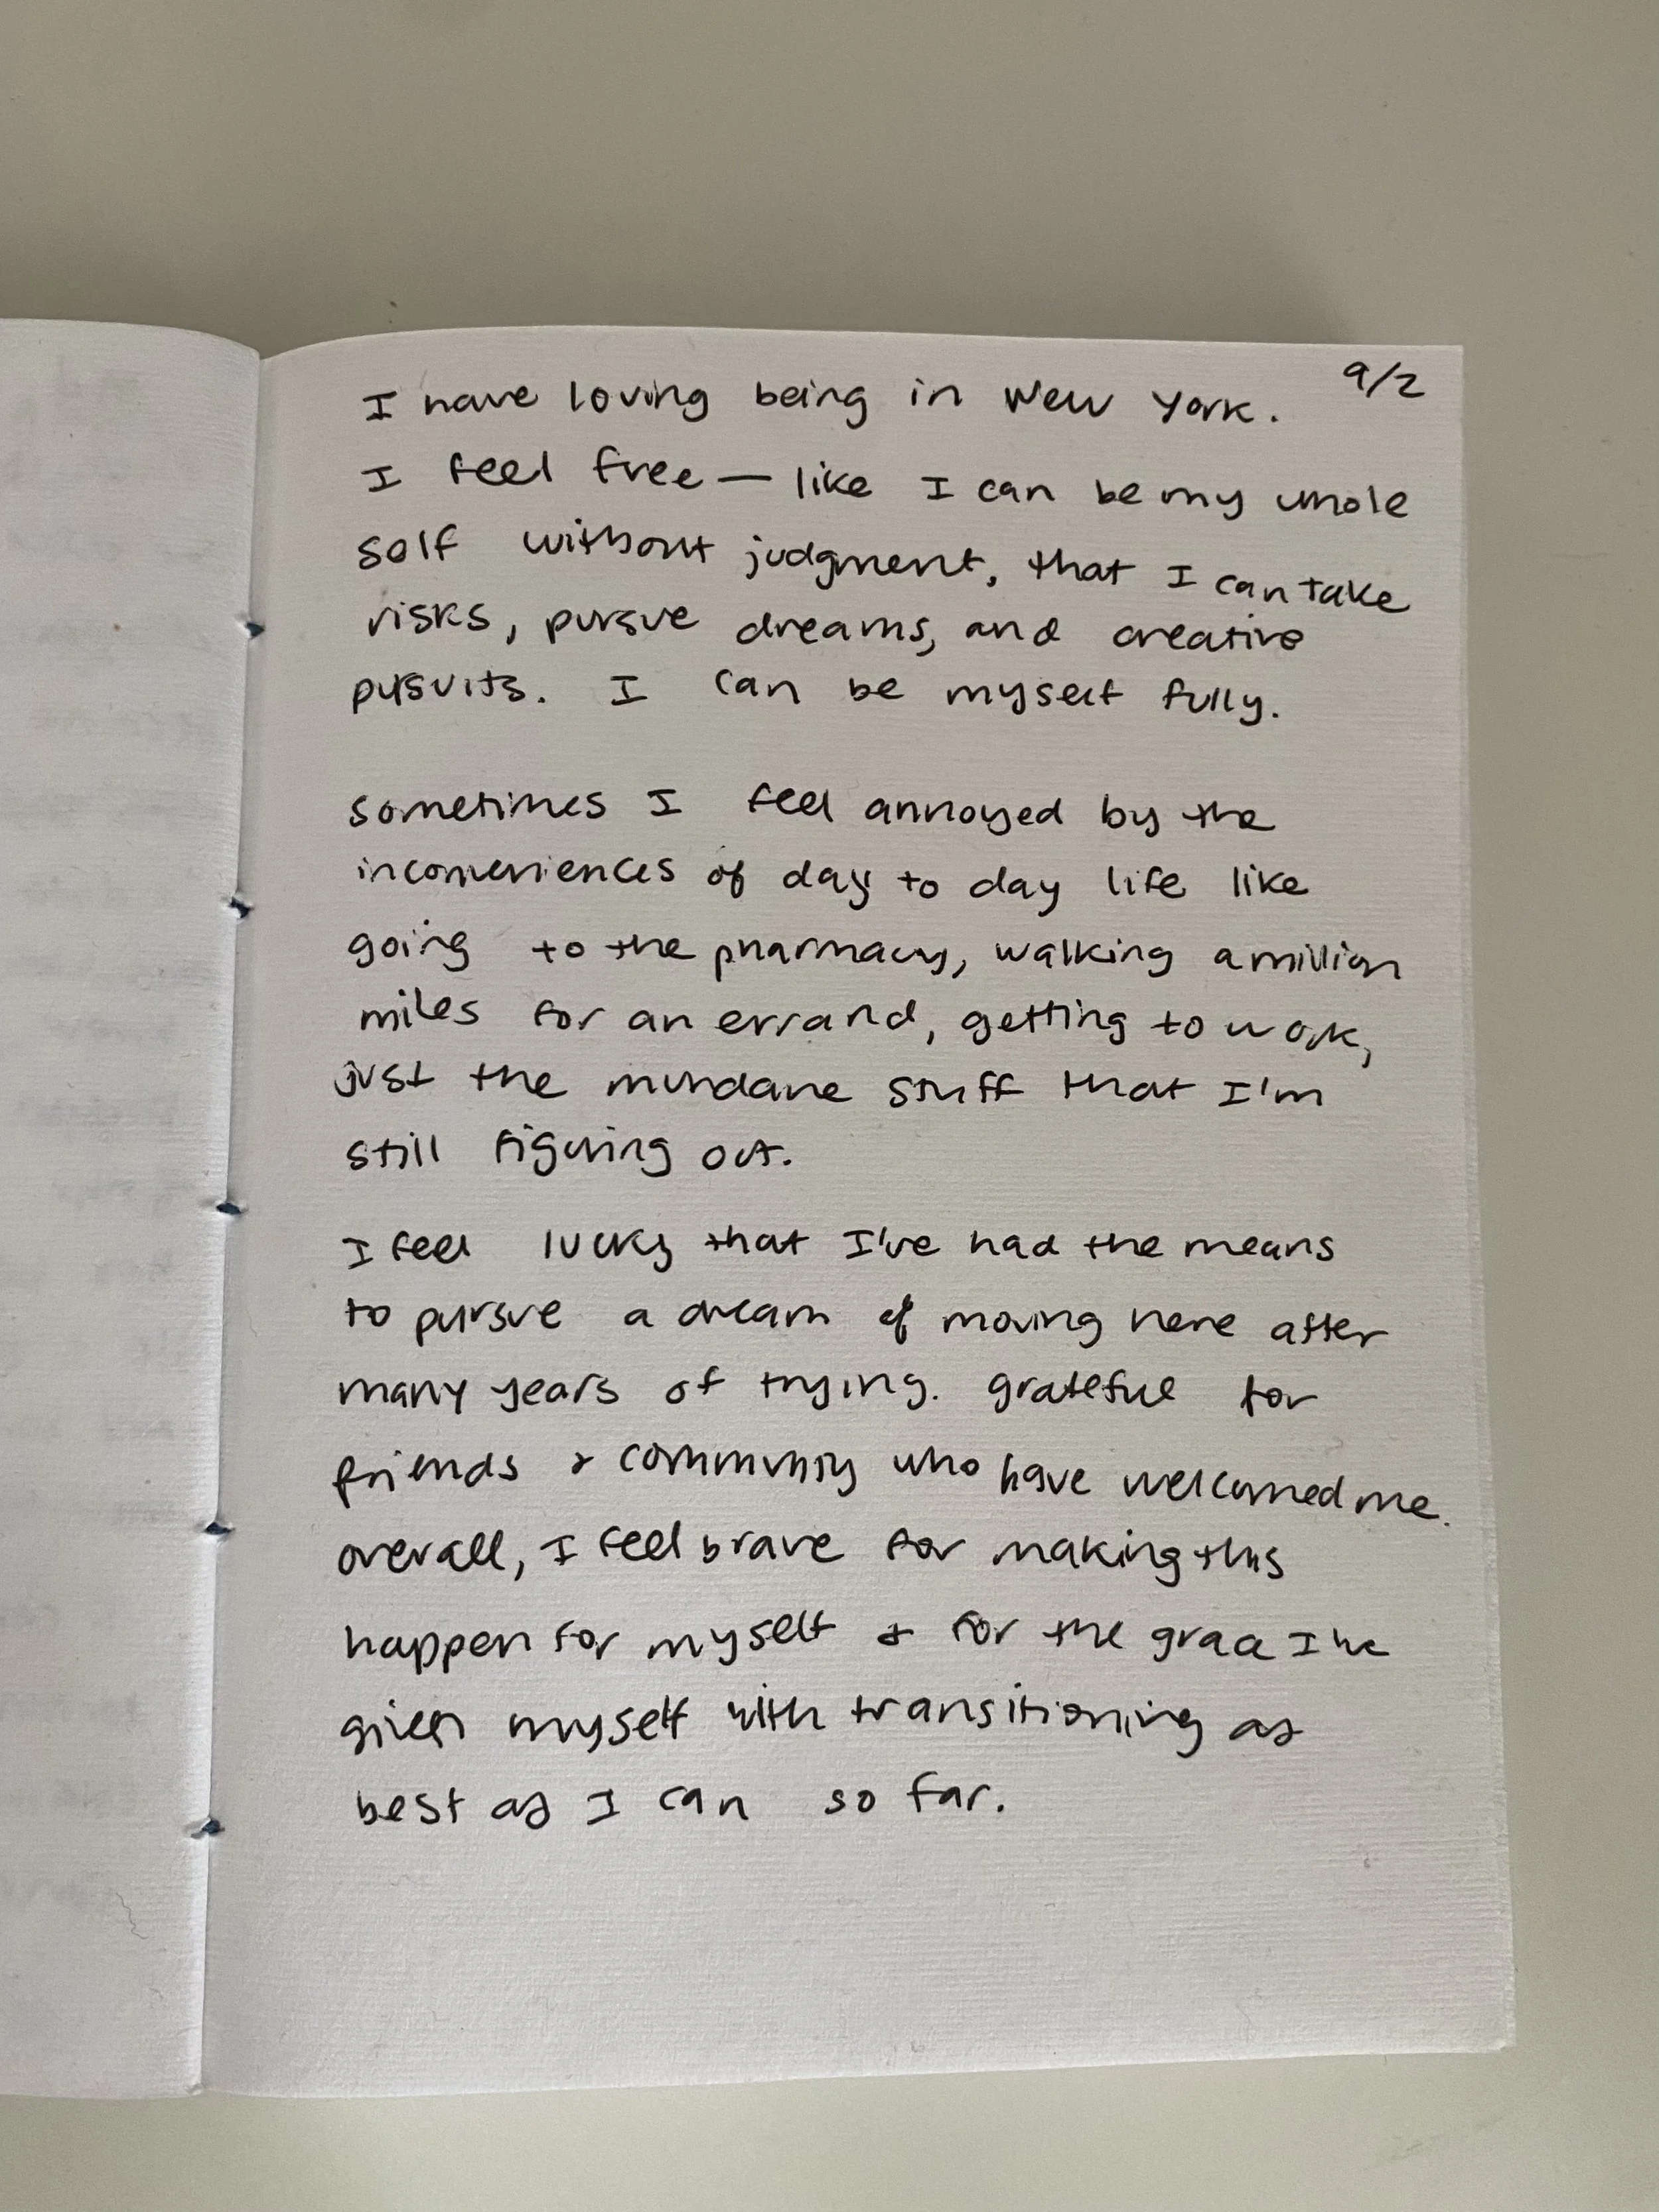 9/2
I have loving being in New York.
I feel free — like I can be my whole
self without judgment, that I can take
risks, pursue dreams, and creative
pursuits. I can be myself fully.
sometimes I feel annoyed by the
inconveniences of day to day life like
going to the pharmacy, walking a million
miles for an errand, getting to work,
just the mundane stuff that I'm
still figuring out.
I feel lucky that I've had the means
to pursue a dream of moving here after
many years of trying. grateful for
friends & community who have welcomed me.
overall, I feel brave for making this
happen for myself & for the grace I've
given myself with transitioning as
best as I can so far.